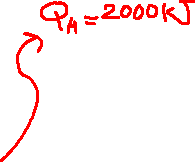 Q_A = 2000kJ